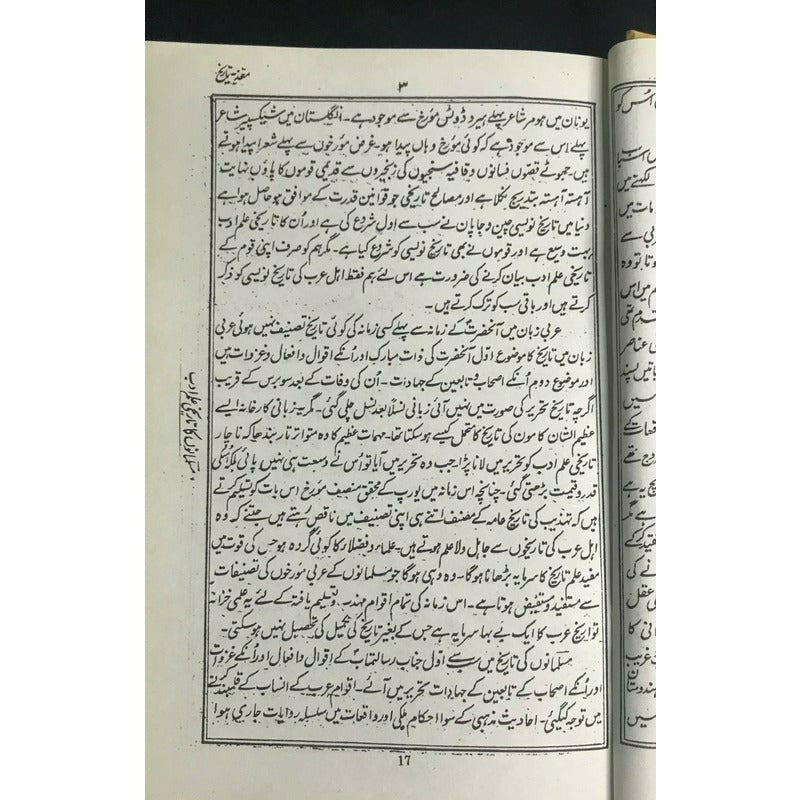 مقدمہ تاریخ
۳
یونان میں ہومر شاعر پہلے ہیروڈوٹس مورخ سے موجود ہے۔ انگلستان میں شیکسپیر شاعر
پہلے اس سے موجود ہے کہ کوئی مورخ وہاں پیدا ہو۔ غرض مورخوں سے پہلے شعرا پیدا ہوتے
ہیں۔ جھوٹے قصوں فسانوں وقافیہ سنجیوں کی زنجیروں سے قدیمی قوموں کا پاؤں نہایت
آہستہ آہستہ بتدریج نکلا ہے اور مصالح تاریخی جو قوانین قدرت کے موافق ہو حاصل ہوا ہے
دنیا میں تاریخ نویسی چین وجاپان نے سب سے اول شروع کی ہے اور اُن کا تاریخی علم ادب
بہت وسیع ہے اور قوموں نے بھی تاریخ نویسی کو شروع کیا ہے۔ مگر ہم کو صرف اپنی قوم کے
تاریخی علم ادب بیان کرنے کی ضرورت ہے اس لئے ہم فقط اہل عرب کی تاریخ نویسی کو ذکر
کرتے ہیں اور باقی سب کو ترک کرتے ہیں۔
عربی زبان میں آنحضرتؐ کے زمانہ سے پہلے کسی زمانہ کی کوئی تاریخ تصنیف نہیں ہوئی عربی
زبان میں تاریخ کا موضوع اول آنحضرت کی ذات مبارک اور اُنکے اقوال وافعال وغزوات ہیں
اور موضوع دوم اُنکے اصحاب وتابعین کے جہادات۔ اُن کی وفات کے بعد سو برس کے قریب
اگرچہ تاریخ تحریر کی صورت میں نہیں آئی زبانی نسلاً بعد نسل چلی گئی۔ مگر یہ زبانی کارخانہ ایسے
عظیم الشان کاموں کی تاریخ کا متحمل کیسے ہوسکتا تھا۔ مہمات عظیم کا وہ متواتر تار بندھا کہ ناچار
تاریخی علم ادب کو تحریر میں لانا پڑا جب وہ تحریر میں آیا تو اُس نے وسعت ہی نہیں پائی بلکہ اُسکی
قدر وقیمت بڑھتی گئی۔ چنانچہ اس زمانہ میں یورپ کے محقق منصف مورخ اس بات کو تسلیم کرتے
ہیں کہ تہذیب کی تاریخ عامہ کے مصنف اتنے ہی اپنی تصنیف میں ناقص رہتے ہیں جتنے کہ وہ
اہل عرب کی تاریخوں سے جاہل ولا علم ہوتے ہیں۔ علماء وفضلاء کا کوئی گروہ ہو جس کی قوت میں
مفید علم تاریخ کا سرمایہ بڑھانا ہوگا۔ وہ وہی ہوگا جو مسلمانوں کے عربی مورخوں کی تصنیفات
سے مستفید ومستفیض ہوتا ہے۔ اس زمانہ کی تمام اقوام مہذب وتعلیم یافتہ کے لئے یہ علمی خزانہ
تواریخ عرب کا ایک بے بہا سرمایہ ہے جس کے بغیر تاریخ کی تکمیل کی تحصیل نہیں ہوسکتی۔
مسلمانوں کی تاریخ میں سب سے اول جناب رسالتمآبؐ کے اقوال وافعال اور اُنکے غزوات
اور اُنکے اصحاب کے تابعین کے جہادات تحریر میں آئے۔ اقوام عرب کے انساب کے قلمبند کرنے
میں توجہ کیگئی۔ احادیث مذہبی کے سوا احکام ملکی اور واقعات میں سلسلہ روایات جاری ہوا
مسلمانوں کا تاریخی علم ادب
17